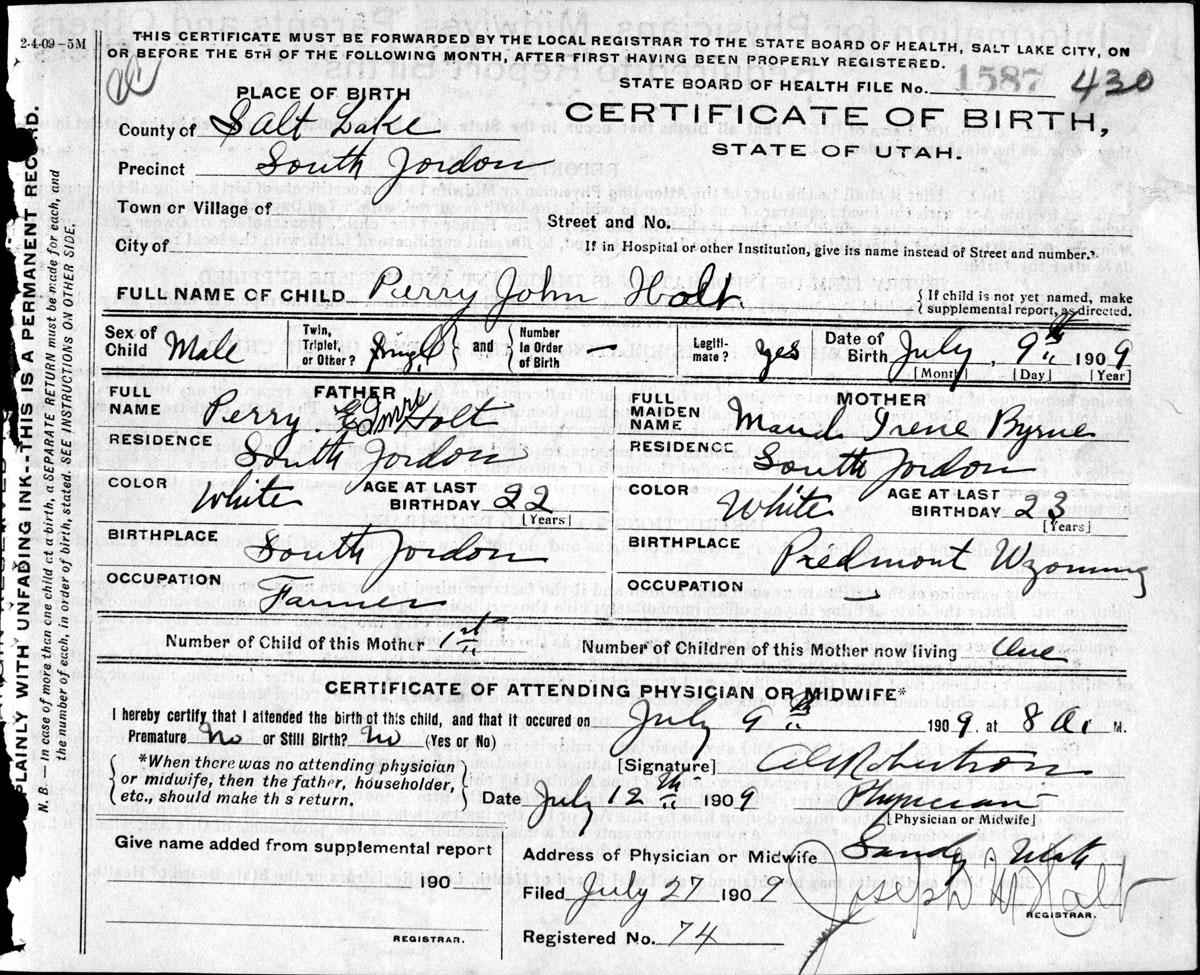 2-4-09-5M
THIS CERTIFICATE MUST BE FORWARDED BY THE LOCAL REGISTRAR TO THE STATE BOARD OF HEALTH, SALT LAKE CITY, ON
OR BEFORE THE 5TH OF THE FOLLOWING MONTH, AFTER FIRST HAVING BEEN PROPERLY REGISTERED.
STATE BOARD OF HEALTH FILE No. 1587 430
PLACE OF BIRTH
CERTIFICATE OF BIRTH,
STATE OF UTAH.
County of Salt Lake
Precinct South Jordon
Town or Village of
Street and No.
City of
If in Hospital or other Institution, give its name instead of Street and number.
FULL NAME OF CHILD Perry John Holt
{ If child is not yet named, make
supplemental report, as directed.
Sex of Child Male
Twin, Triplet, or Other? Single and { Number in Order of Birth —
Legiti-mate? yes
Date of Birth July, 9th 1909
[Month] [Day] [Year]
FATHER
FULL NAME Perry Holt
RESIDENCE South Jordon
COLOR White AGE AT LAST BIRTHDAY 22
[Years]
BIRTHPLACE South Jordon
OCCUPATION Farmer
MOTHER
FULL MAIDEN NAME Maud Irene Byrne
RESIDENCE South Jordon
COLOR White AGE AT LAST BIRTHDAY 23
[Years]
BIRTHPLACE Piedmont Wyoming
OCCUPATION
Number of Child of this Mother 1st
Number of Children of this Mother now living One
CERTIFICATE OF ATTENDING PHYSICIAN OR MIDWIFE*
I hereby certify that I attended the birth of this child, and that it occured on July 9th 1909, at 8 A. M.
Premature No or Still Birth? No (Yes or No)
{ *When there was no attending physician
or midwife, then the father, householder,
etc., should make this return. }
[Signature] Robertson
Date July 12th 1909 Physician
[Physician or Midwife]
Give name added from supplemental report
190
REGISTRAR.
Address of Physician or Midwife Sandy, Utah
Filed July 27 1909 Joseph Holt
REGISTRAR.
Registered No. 74
PLAINLY WITH UNFADING INK--THIS IS A PERMANENT RECORD.
N. B.—In case of more than one child at a birth, a SEPARATE RETURN must be made for each, and
the number of each, in order of birth, stated. SEE INSTRUCTIONS ON OTHER SIDE.